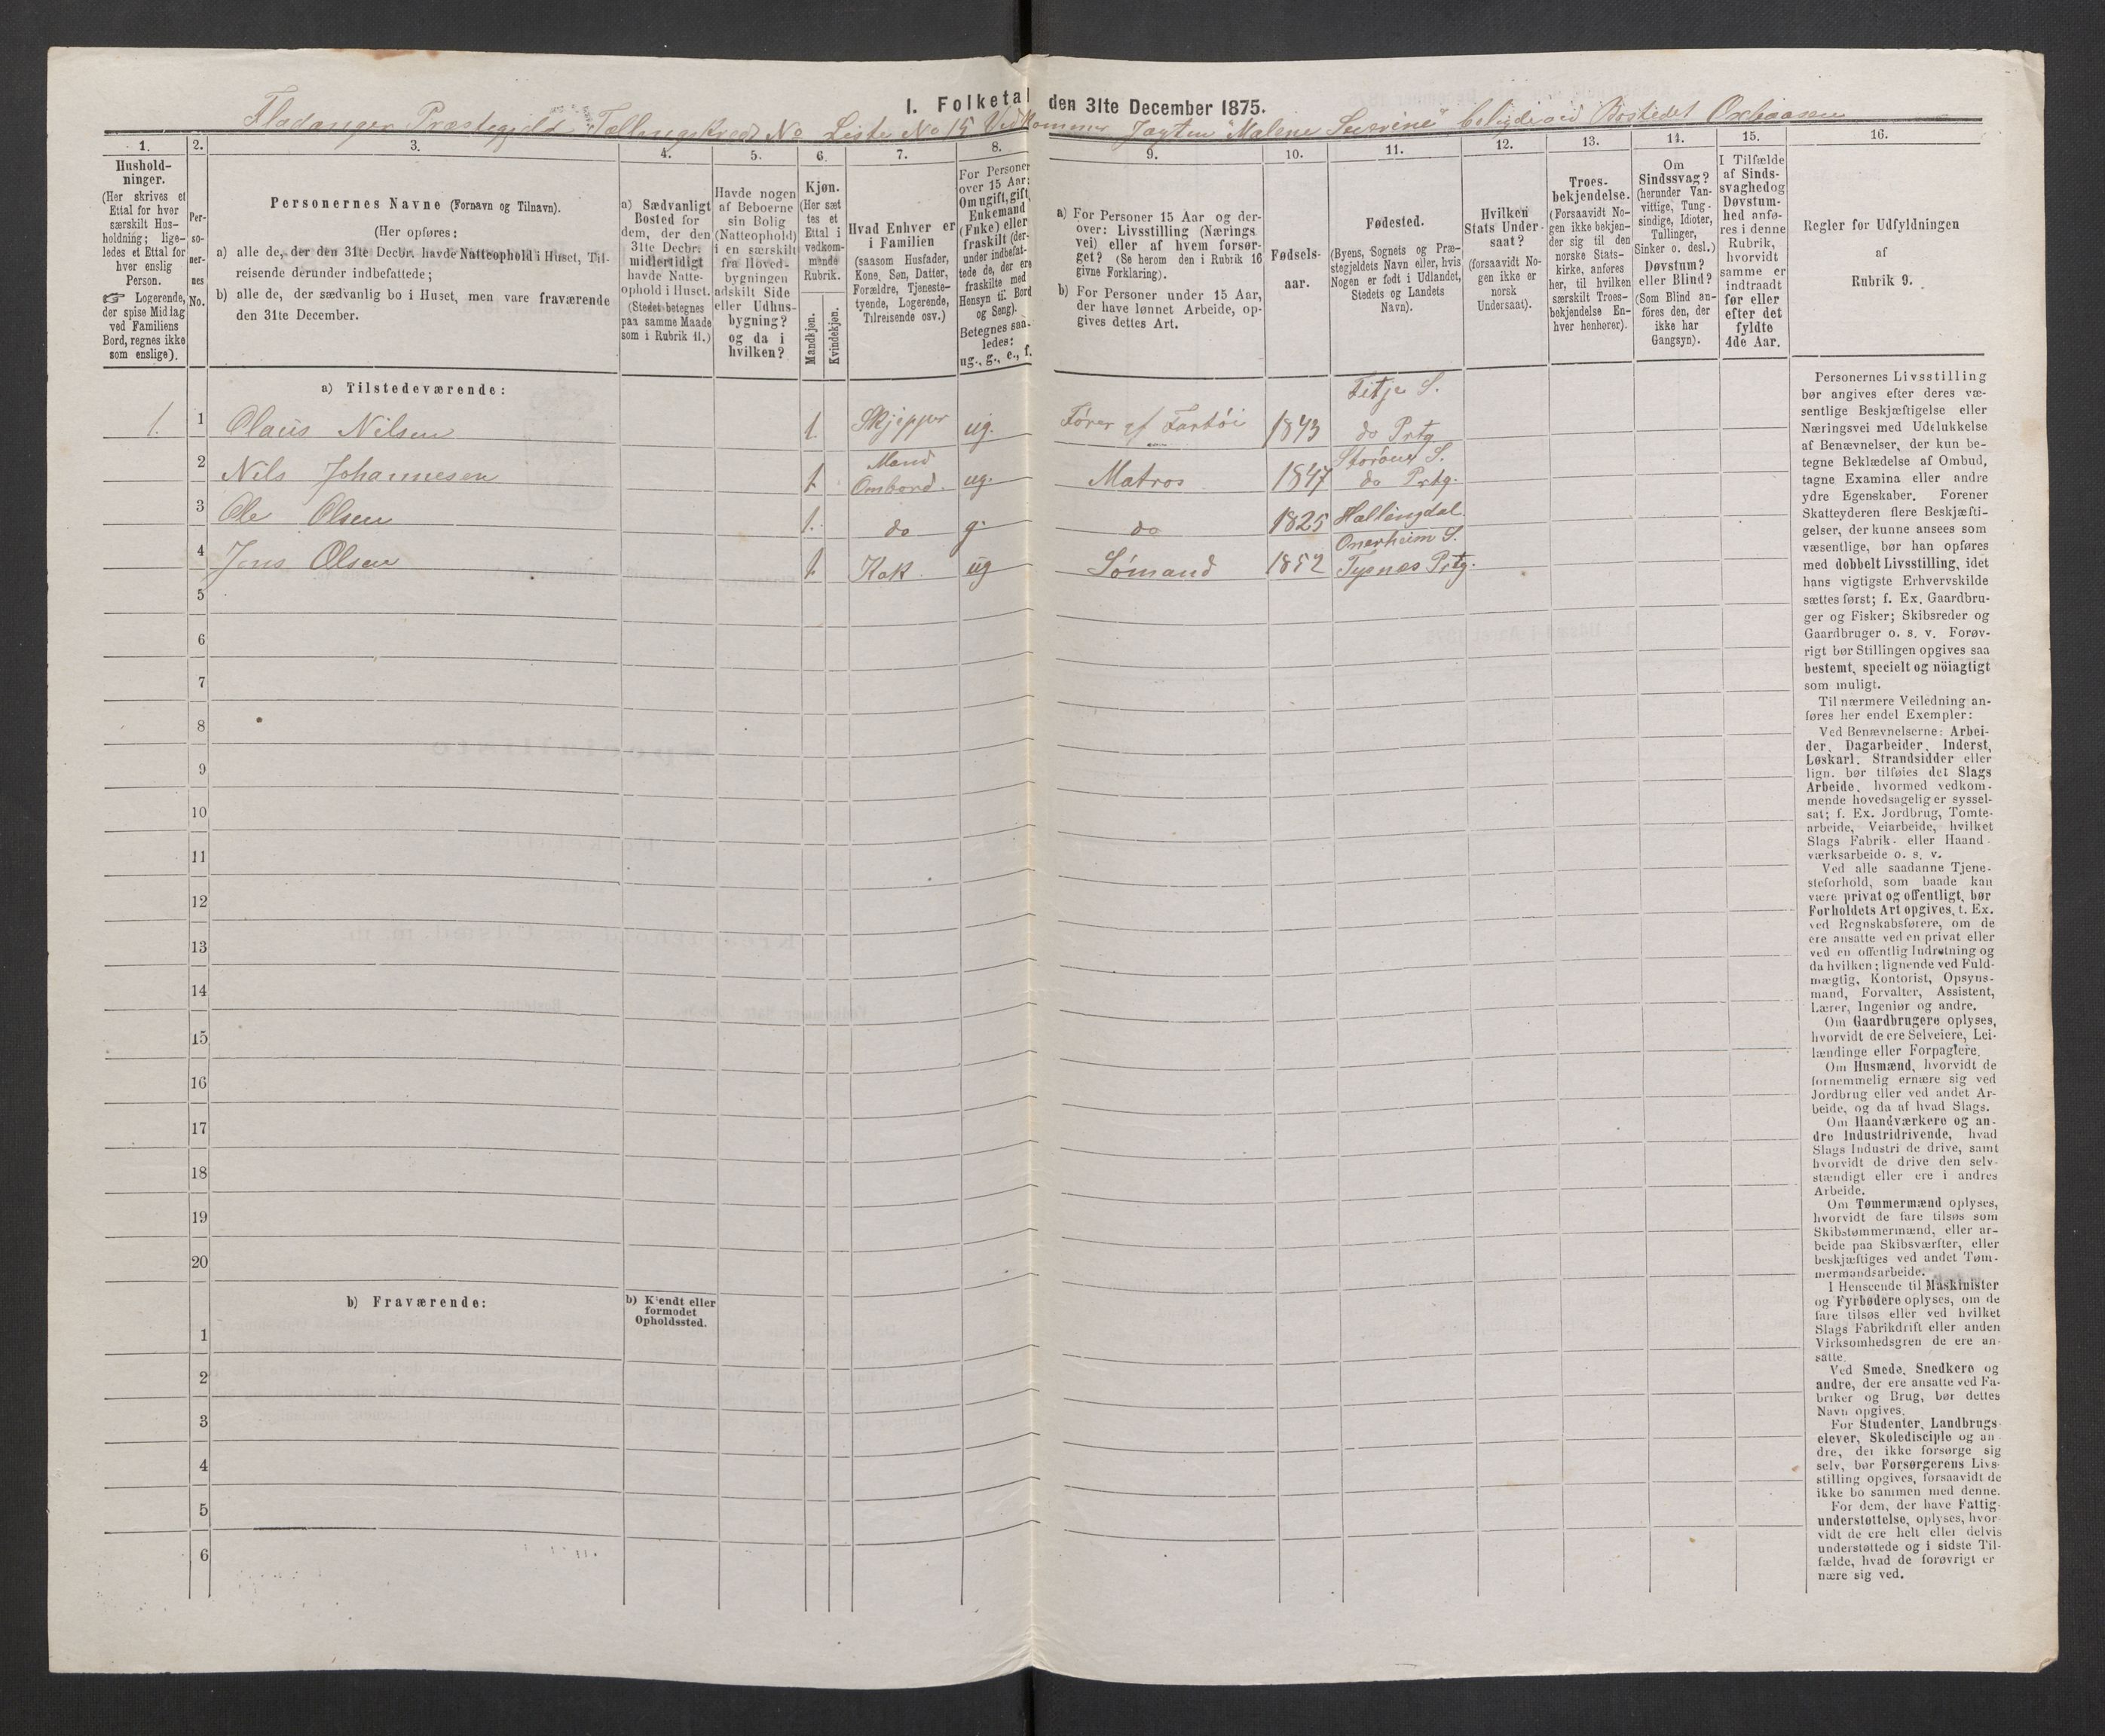 I. Folketal den 31te December 1875.
Fladanger Præstegjeld Tællingskreds No Liste No 15 Vedkommer Jagten "Malene Severine" beliggd ved Bostedet Oxbaasen
1.
2.
3.
4.
5.
6.
7.
8.
9.
10.
11.
12.
13.
14.
15.
16.
Hushold-
ninger.
(Her skrives et
Ettal for hver
særskilt Hus-
holdning; lige-
ledes et Ettal for
hver enslig
Person.
☞ Logerende,
der spise Middag
ved Familiens
Bord, regnes ikke
som enslige).
Per-
so-
ner-
nes
No.
Personernes Navne (Fornavn og Tilnavn).
(Her opføres:
a) alle de, der den 31te Decbr. havde Natteophold i Huset, Til-
reisende derunder indbefattede;
b) alle de, der sædvanlig bo i Huset, men vare fraværende
den 31te December.
a) Sædvanligt
Bosted for
dem, der den
31te Decbr.
midlertidigt
havde Natte-
ophold i Huset.
(Stedet betegnes
paa samme Maade
som i Rubrik 11.)
Havde nogen
af Beboerne
sin Bolig
(Natteophold)
i en særskilt
fra Hoved-
bygningen
adskilt Side
eller Udhus-
bygning?
og da i
hvilken?
Kjøn.
(Her sæt
tes et
Ettal i
vedkom-
mende
Rubrik.
Mandkjøn.
Kvindekjøn.
Hvad Enhver er
i Familien
(saasom Husfader,
Kone, Søn, Datter,
Forældre, Tjeneste-
tyende, Logerende,
Tilreisende osv.)
For Personer
over 15 Aar:
Om ugift, gift,
Enkemand
(Enke) eller
fraskilt (der-
under indbefat-
tede de, der ere
fraskilte med
Hensyn til Bord
og Seng).
Betegnes saa-
ledes:
ug., g., e., f.
a) For Personer 15 Aar og der-
over: Livsstilling (Nærings
vei) eller af hvem forsør-
get? (Se herom den i Rubrik 16
givne Forklaring).
b) For Personer under 15 Aar,
der have lønnet Arbeide, op-
gives dettes Art.
Fødsels-
aar.
Fødested.
(Byens, Sognets og Præ-
stegjeldets Navn eller, hvis
Nogen er født i Udlandet,
Stedets og Landets
Navn).
Hvilken
Stats Under-
saat?
(forsaavidt No-
gen ikke er
norsk
Undersaat).
Troes-
bekjendelse.
(Forsaavidt No-
gen ikke bekjen-
der sig til den
norske Stats-
kirke, anføres
her, til hvilken
særskilt Troes-
bekjendelse En-
hver henhører).
Om
Sindssvag?
(herunder Van-
vittige, Tung-
sindige, Idioter,
Tullinger,
Sinker o. desl.)
Døvstum?
eller Blind?
(Som Blind an-
føres den, der
ikke har
Gangsyn).
I Tilfælde
af Sinds-
svaghedog
Døvstum-
hed anfø-
res i denne
Rubrik,
hvorvidt
samme er
indtraadt
før eller
efter det
fyldte
4de Aar.
Regler for Udfyldningen
af
Rubrik 9.
a) Tilstedeværende:
1. 1 Olaus Nilsen 1. Skjipper ug. Fører af Fartøi 1843 Fitje S. do Prtg
2 Nils Johannesen 1 Mand Ombord. ug. Matros 1847 Storøens S. do Prtg.
3 Ole Olsen 1. do g. do 1825 Hallingdal.
4 Jens Olsen 1 Kok ug Sømand 1852 Onarheim S. Tysnæs Prtg.
5
6
7
8
9
10
11
12
13
14
15
16
17
18
19
20
b) Fraværende:
b) Kjendt eller
formodet
Opholdssted.
1
2
3
4
5
6
Personernes Livsstilling
bør angives efter deres væ-
sentlige Beskjæftigelse eller
Næringsvei med Udelukkelse
af Benævnelser, der kun be-
tegne Beklædelse af Ombud,
tagne Examina eller andre
ydre Egenskaber. Forener
Skatteyderen flere Beskjæfti-
gelser, der kunne ansees som
væsentlige, bør han opføres
med dobbelt Livsstilling, idet
hans vigtigste Erhvervskilde
sættes først; f. Ex. Gaardbru-
ger og Fisker; Skibsreder og
Gaardbruger o. s. v. Forøv-
rigt bør Stillingen opgives saa
bestemt, specielt og nöiagtigt
som muligt.
Til nærmere Veiledning an-
føres her endel Exempler:
Ved Benævnelserne: Arbei-
der, Dagarbeider, Inderst,
Løskarl, Strandsidder eller
lign. bør tilføies det Slags
Arbeide, hvormed vedkom-
mende hovedsagelig er syssel-
sat; f. Ex. Jordbrug, Tomte-
arbeide, Veiarbeide, hvilket
Slags Fabrik- eller Haand-
værksarbeide o. s. v.
Ved alle saadanne Tjene-
steforhold, som baade kan
være privat og offentligt, bør
Forholdets Art opgives, t. Ex.
ved Regnskabsførere, om de
ere ansatte ved en privat eller
ved en offentlig Indretning og
da hvilken; lignende ved Fuld-
mægtig, Kontorist, Opsyns-
mand, Forvalter, Assistent,
Lærer, Ingeniør og andre.
Om Gaardbrugere oplyses,
hvorvidt de ere Selveiere, Lei-
lændinge eller Forpagtere.
Om Husmænd, hvorvidt de
fornemmelig ernære sig ved
Jordbrug eller ved andet Ar-
beide, og da af hvad Slags.
Om Haandværkere og an-
dre Industridrivende, hvad
Slags Industri de drive, samt
hvorvidt de drive den selv-
stændigt eller ere i andres
Arbeide.
Om Tømmermænd oplyses,
hvorvidt de fare tilsøs som
Skibstømmermænd, eller ar-
beide paa Skibsværfter, eller
beskjæftiges ved andet Tøm-
mermandsarbeide.
I Henseende til Maskinister
og Fyrbødere oplyses, om de
fare tilsøs eller ved hvilket
Slags Fabrikdrift eller anden
Virksomhedsgren de ere an-
satte.
Ved Smede, Snedkere og
andre, der ere ansatte ved Fa-
briker og Brug, bør dettes
Navn opgives.
For Studenter, Landbrugs-
elever, Skoledisciple og an-
dre, der ikke forsørge sig
selv, bør Forsørgerens Livs-
stilling opgives, forsaavidt de
ikke bo sammen med denne.
For dem, der have Fattig-
understøttelse, oplyses, hvor-
vidt de ere helt eller delvis
understøttede og i sidste Til-
fælde, hvad de forøvrigt er
nære sig ved.